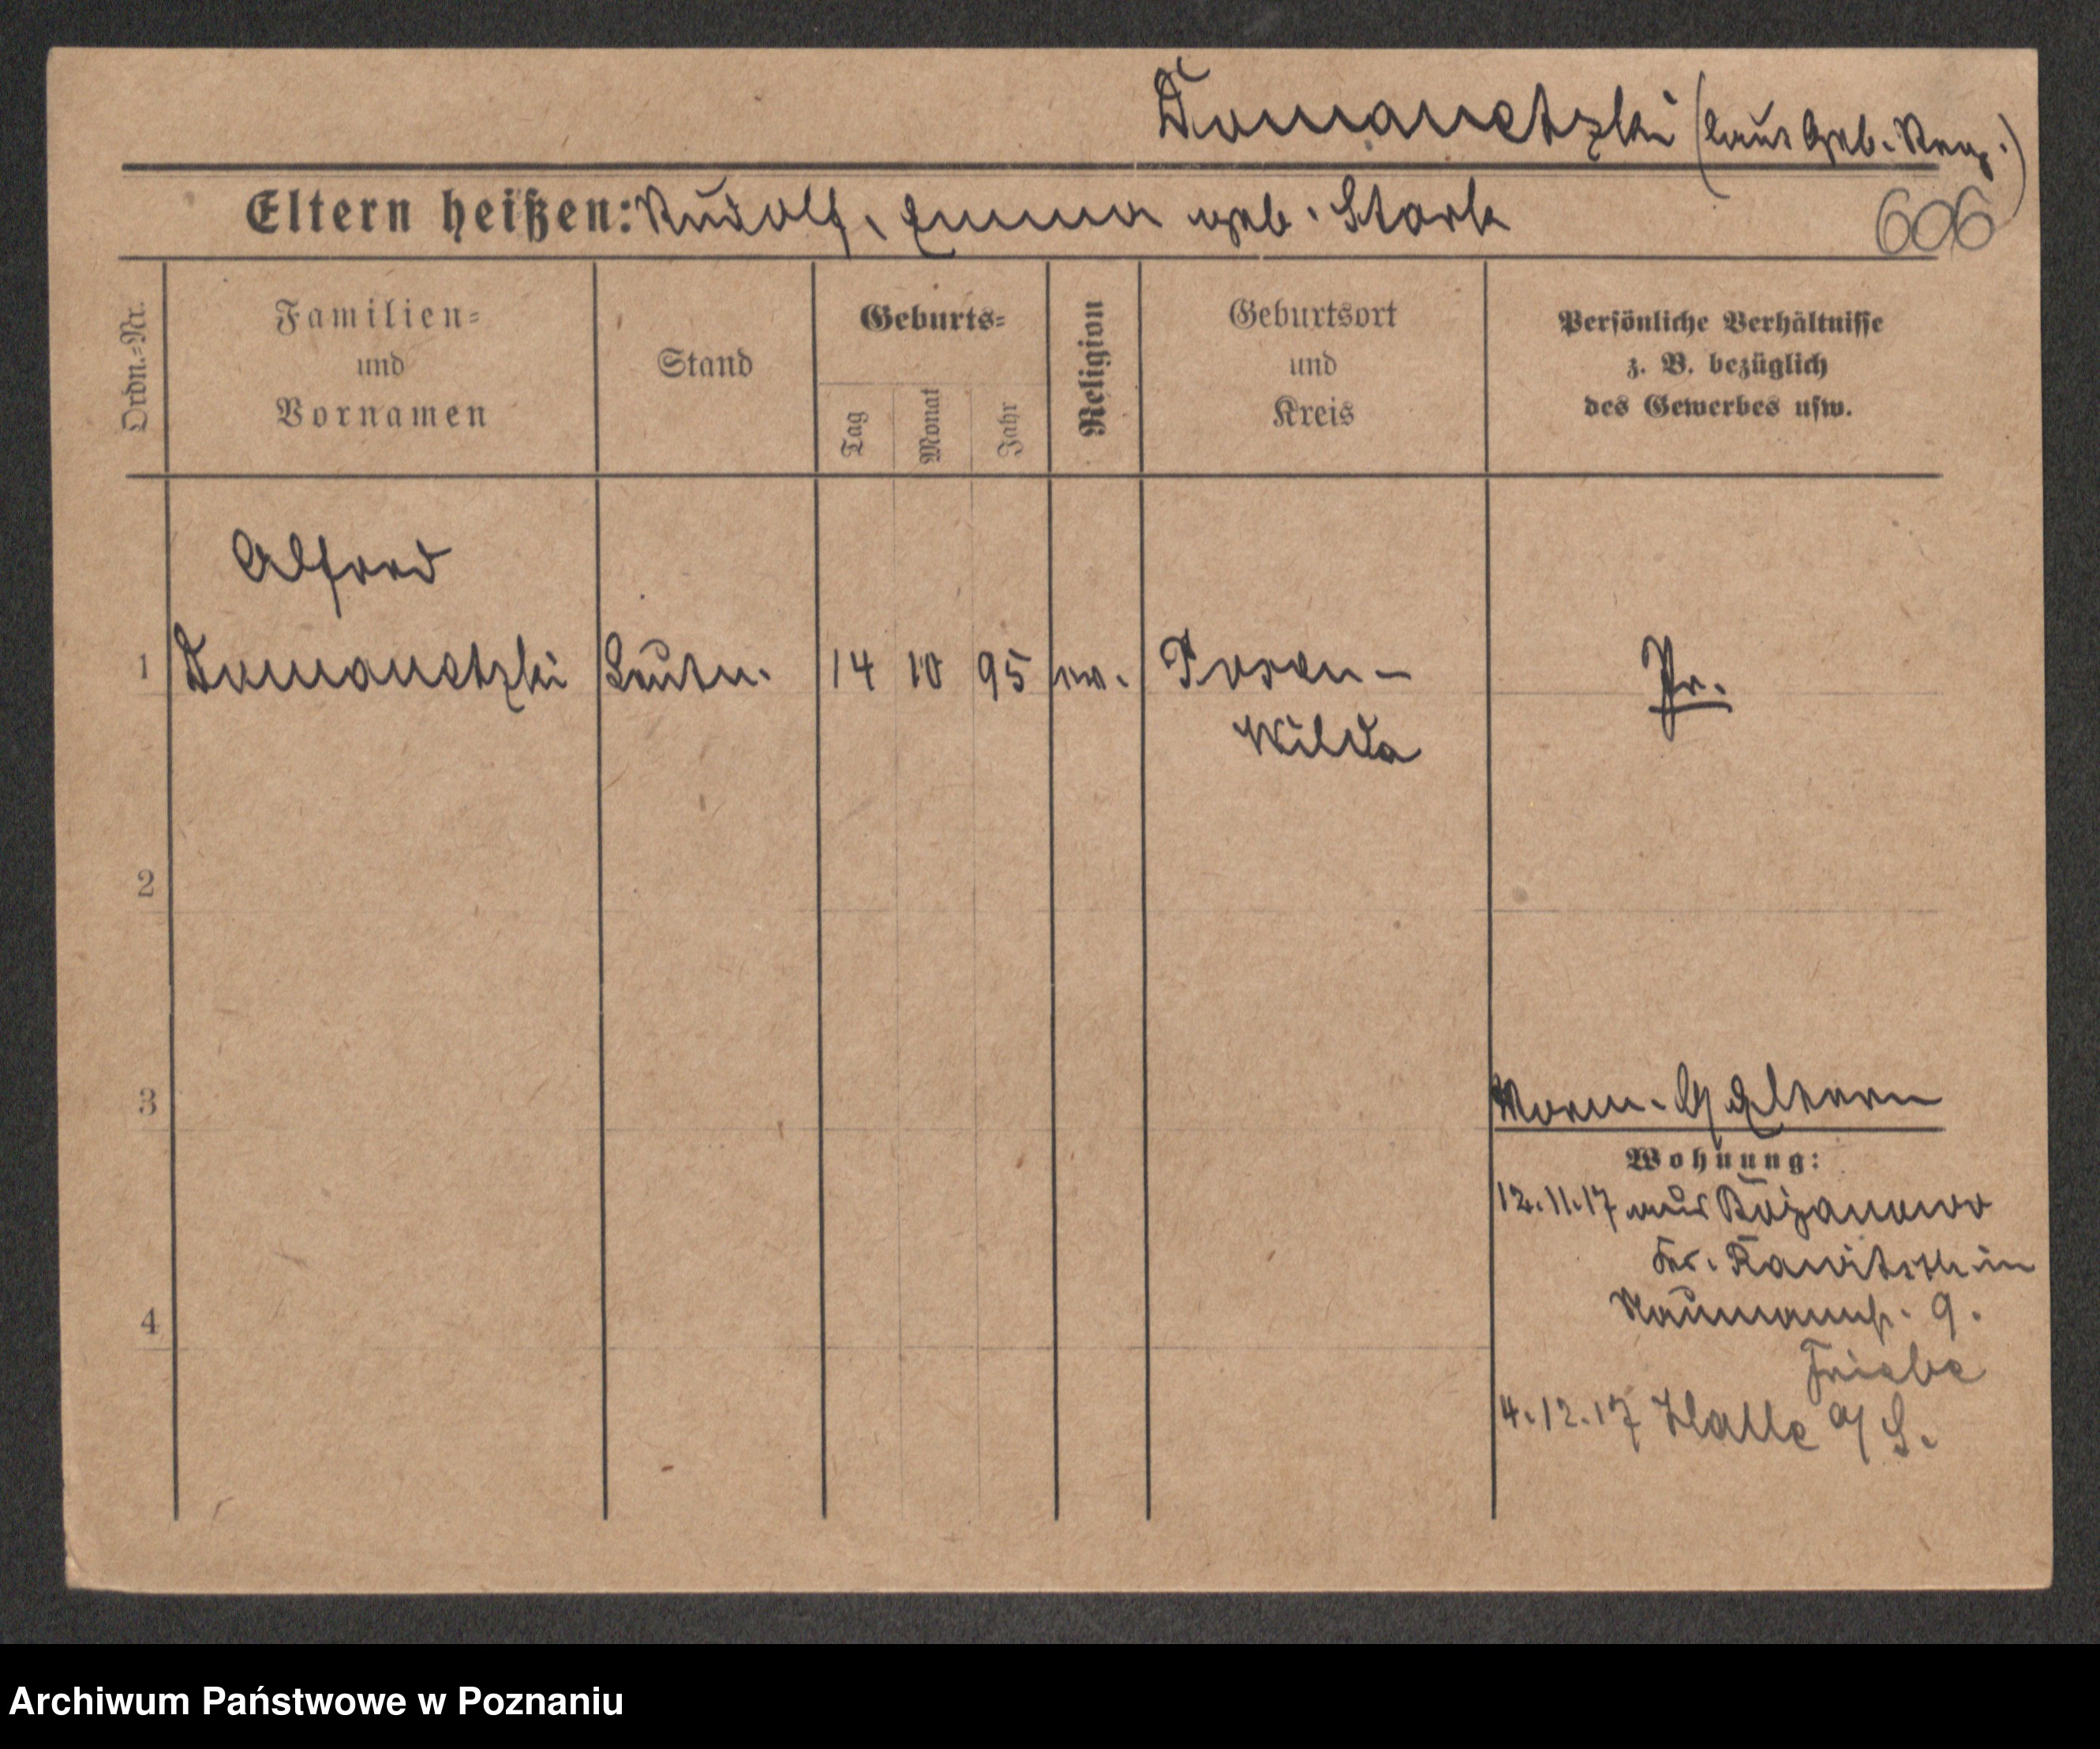 Domanetzki (laut Geb. Urk.)
Eltern heißen: Rudolf, Emma geb. Stark
606
Ordn.=Nr.
Familien=
und
Vornamen
Stand
Geburts=
Tag
Monat
Jahr
Religion
Geburtsort
und
Kreis
Persönliche Verhältnisse
z. B. bezüglich
des Gewerbes usw.
Alfred
1 Domanetzki Leutn. 14 10 95 ev. Posen-
Wilda
Pr.
2
3
Eltern
Wohnung:
12.11.17 aus Rozanowo
Kr. Rawitsch in
Naumannstr. 9.
Friebe
4
4.12.17 Halle a/S.
Archiwum Państwowe w Poznaniu